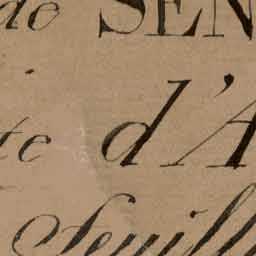 de SEN
te d'A
Feuill